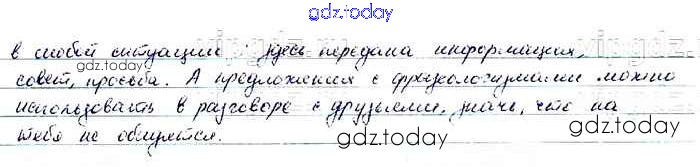 gdz.today
в любой ситуации: здесь передана информация,
совет, просьба. А предложения с фразеологизмами можно
использовать в разговоре с друзьями, зная, что на
тебя не обидятся.
gdz.today
gdz.today